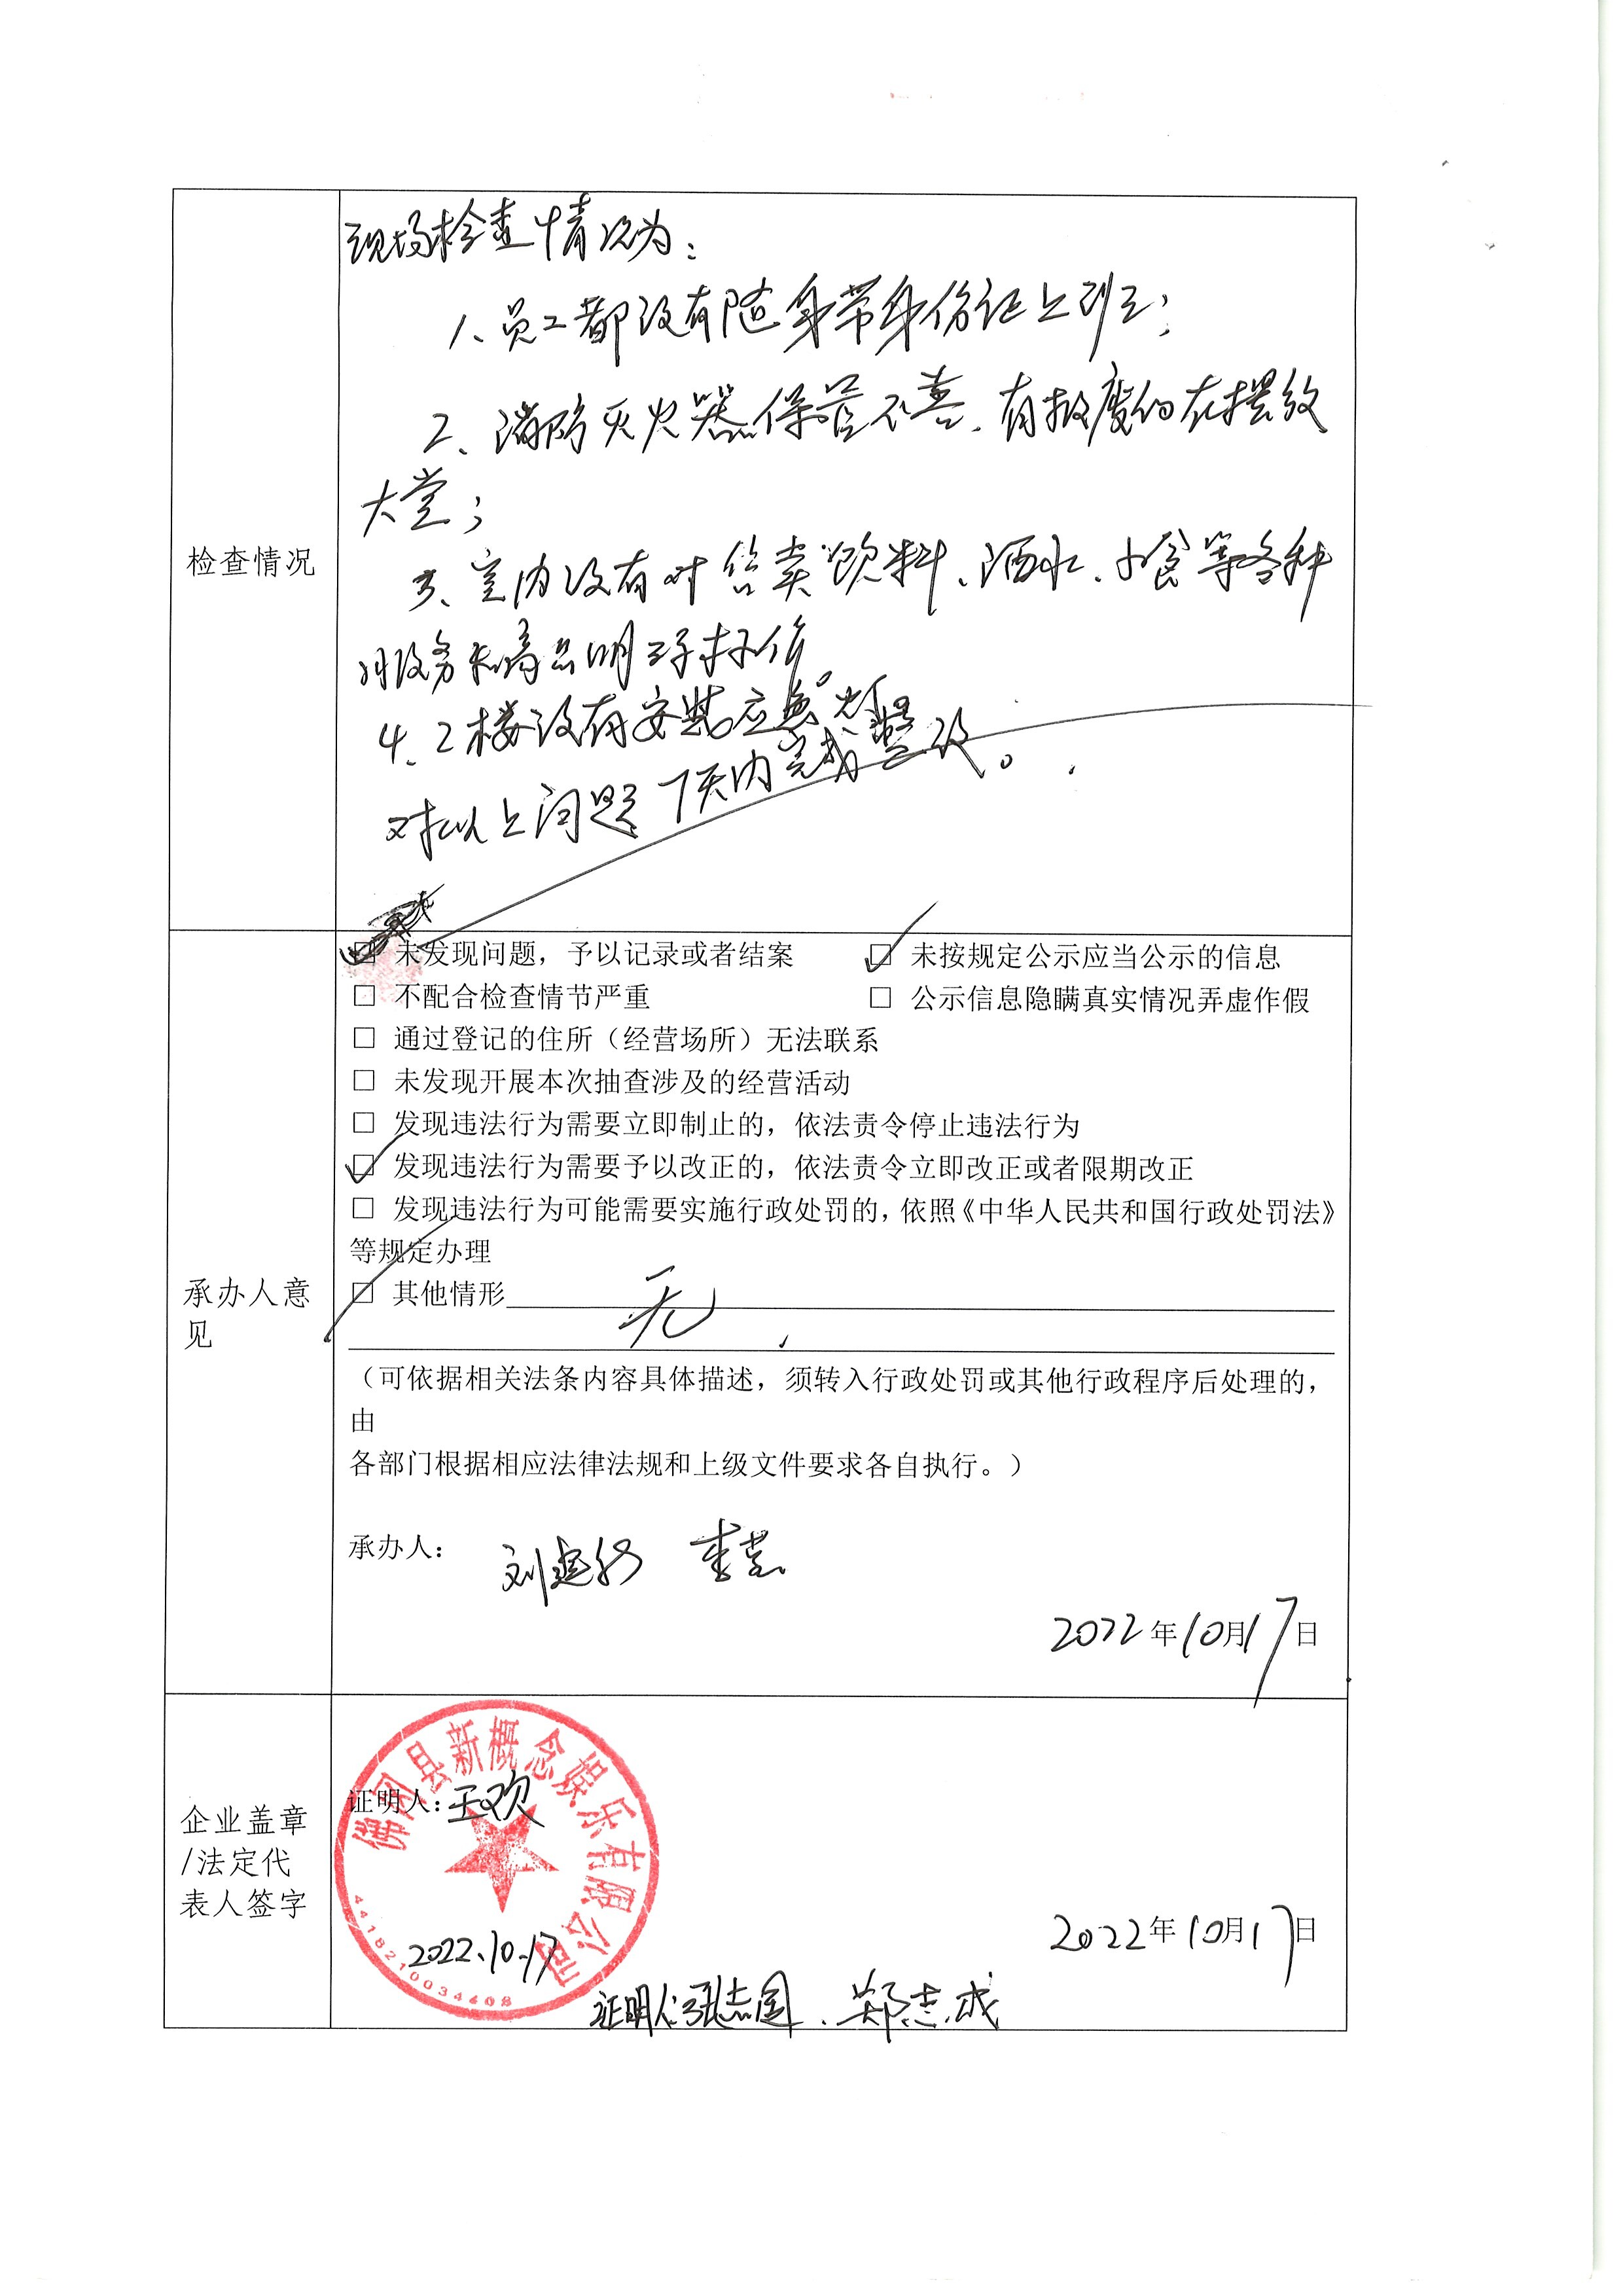 检查情况
现场检查情况为：
1、员工都没有随身带身份证上班；
2、消防灭火器保管不善，有报废的在摆放
大堂；
3、室内没有对售卖饮料、酒水、小食等各种
服务和商品明码标价。
4、2楼没有安装应急灯
对以上问题7天内完成整改。
承办人意
见
□ 未发现问题，予以记录或者结案 ☑ 未按规定公示应当公示的信息
□ 不配合检查情节严重 □ 公示信息隐瞒真实情况弄虚作假
□ 通过登记的住所（经营场所）无法联系
□ 未发现开展本次抽查涉及的经营活动
□ 发现违法行为需要立即制止的，依法责令停止违法行为
☑ 发现违法行为需要予以改正的，依法责令立即改正或者限期改正
□ 发现违法行为可能需要实施行政处罚的，依照《中华人民共和国行政处罚法》
等规定办理
□ 其他情形 无
（可依据相关法条内容具体描述，须转入行政处罚或其他行政程序后处理的，
由
各部门根据相应法律法规和上级文件要求各自执行。）
承办人：
2022年10月17日
企业盖章
/法定代
表人签字
佛冈县新概念娱乐有限公司
证明人：王欢
2022.10.17
4418210034408
2022年10月17日
证明人：张志国、郑志成